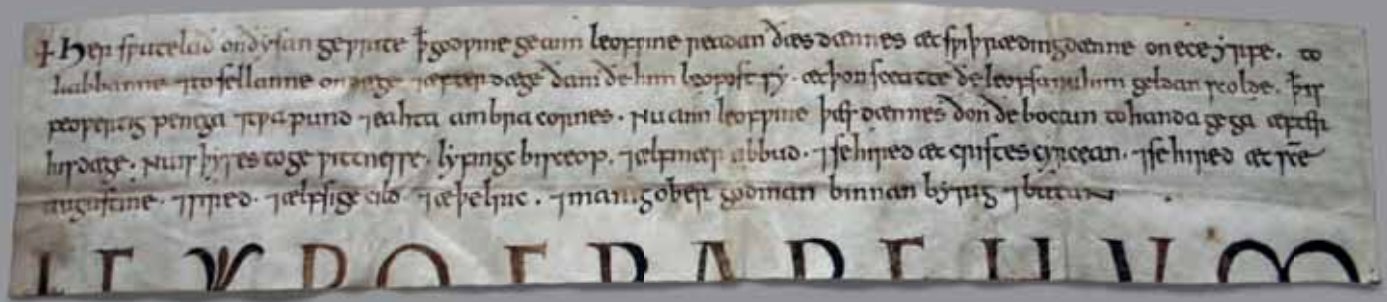 + Her swutelað on ðysan gewrite ꝥ godwine geann leofwine readan ðæs dænnes æt swiþrædingdænne on ece yrfe. to
habbanne ⁊ to sellanne on dæge ⁊ æfter dæge ðam ðe him leofost sy. æt þon sceatte ðe leofsunu him geldan scolde. ꝥ is
feowertig penega ⁊ twa pund ⁊ eahta ambra cornes. Nu ann leofwine þæs dænnes ðon ðe bocun to handa gega æfter
his dæge. Nu is þyses to gewitnesse. lyfingc bisceop. ⁊ ælfmær abbud. ⁊ se hired æt cristes cyrcean. ⁊ se hired æt sc̄e
augustine. ⁊ sired. ⁊ ælfsige cild. ⁊ æþelric. ⁊ manig oþer godman binnan byrig ⁊ butan